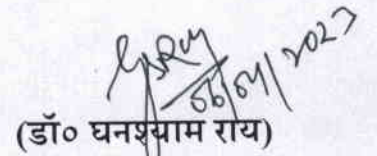 06/04/2023
(डॉ० घनश्याम राय)